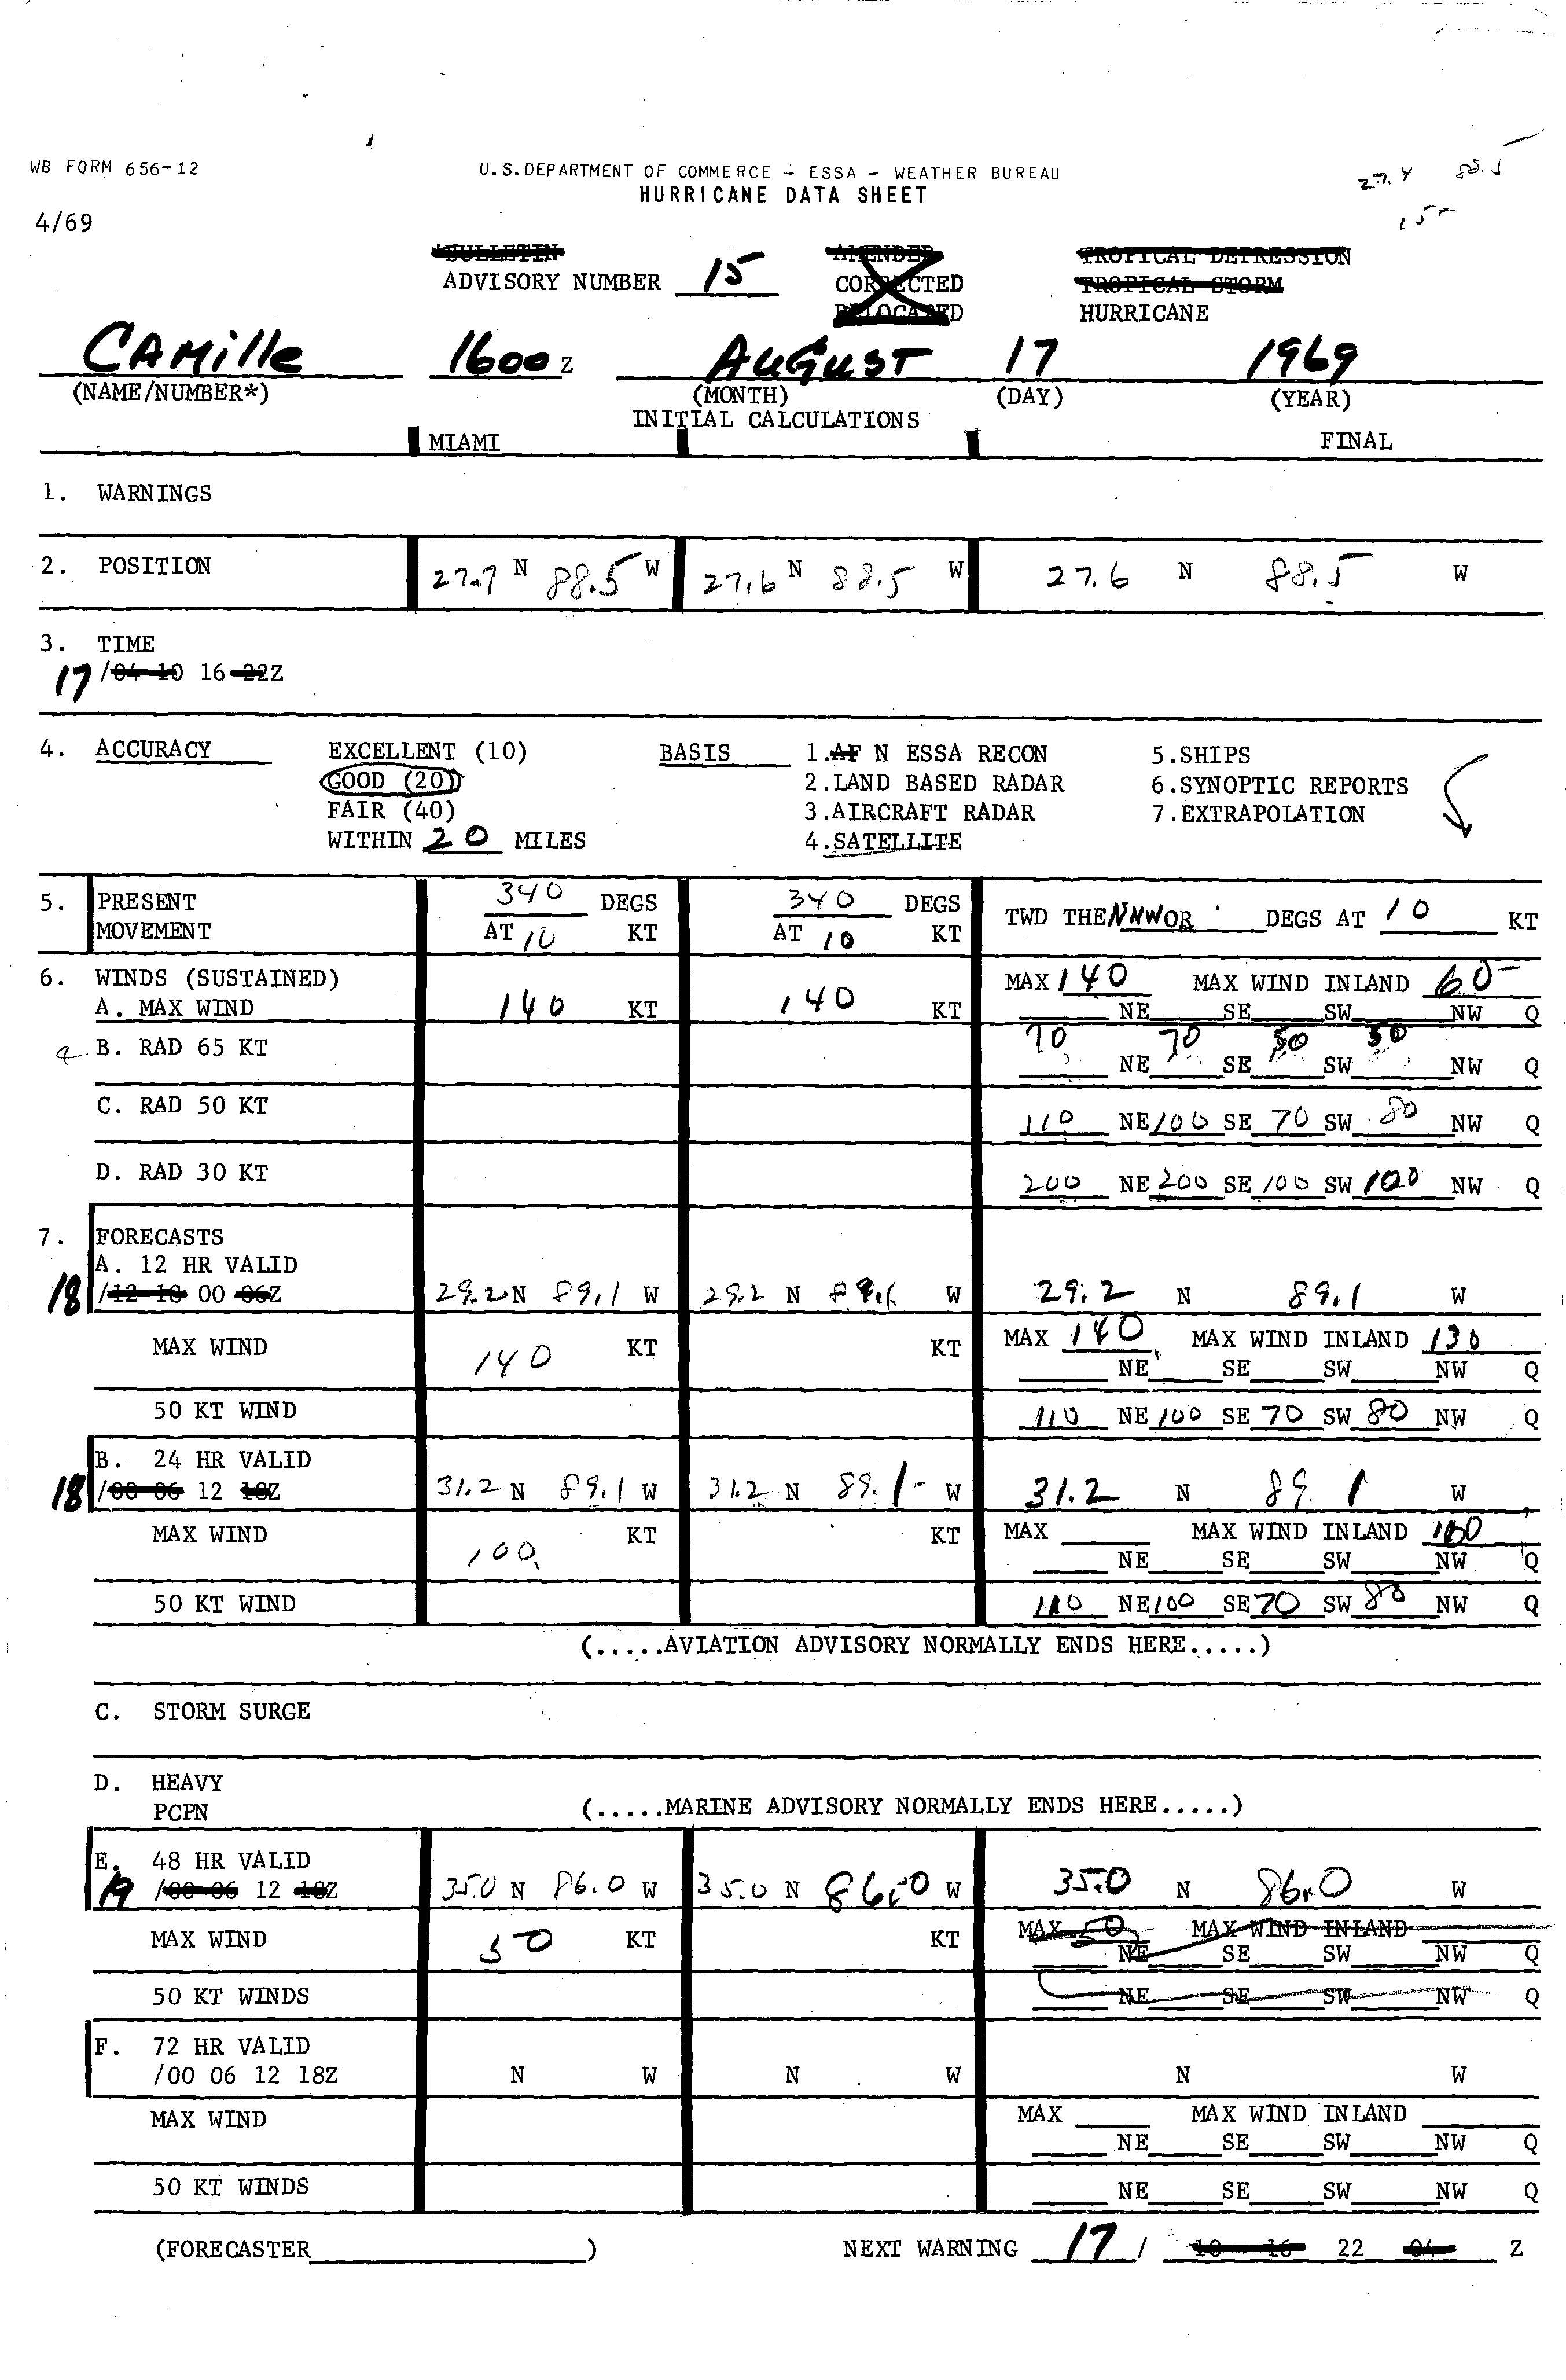 WB FORM 656-12
U.S. DEPARTMENT OF COMMERCE - ESSA - WEATHER BUREAU
HURRICANE DATA SHEET
27.4 88.5
4/69
15
BULLETIN AMENDED TROPICAL DEPRESSION
ADVISORY NUMBER 15 CORRECTED TROPICAL STORM
RELOCATED HURRICANE
CAMille 1600 Z AUGUST 17 1969
(NAME/NUMBER*) (MONTH) (DAY) (YEAR)
INITIAL CALCULATIONS
MIAMI FINAL
1. WARNINGS
2. POSITION 27.7 N 88.5 W 27.6 N 88.5 W 27.6 N 88.5 W
3. TIME
17 /04 10 16 22Z
4. ACCURACY EXCELLENT (10) BASIS 1.AF N ESSA RECON 5.SHIPS
GOOD (20) 2.LAND BASED RADAR 6.SYNOPTIC REPORTS
FAIR (40) 3.AIRCRAFT RADAR 7.EXTRAPOLATION
WITHIN 20 MILES 4.SATELLITE
5. PRESENT 340 DEGS 340 DEGS TWD THE NNW OR DEGS AT 10 KT
MOVEMENT AT 10 KT AT 10 KT
6. WINDS (SUSTAINED) MAX 140 MAX WIND INLAND 60
A. MAX WIND 140 KT 140 KT NE SE SW NW Q
B. RAD 65 KT 70 NE 70 SE 50 SW 50 NW Q
C. RAD 50 KT 110 NE 100 SE 70 SW 80 NW Q
D. RAD 30 KT 200 NE 200 SE 100 SW 100 NW Q
7. FORECASTS
A. 12 HR VALID
18 /12 18 00 06Z 29.2 N 89.1 W 29.2 N 89.1 W 29.2 N 89.1 W
MAX WIND 140 KT KT MAX 140 MAX WIND INLAND 130
NE SE SW NW Q
50 KT WIND 110 NE 100 SE 70 SW 80 NW Q
B. 24 HR VALID
18 /00 06 12 18Z 31.2 N 89.1 W 31.2 N 89.1 W 31.2 N 89.1 W
MAX WIND 100 KT KT MAX MAX WIND INLAND 100
NE SE SW NW Q
50 KT WIND 110 NE 100 SE 70 SW 80 NW Q
(.....AVIATION ADVISORY NORMALLY ENDS HERE.....)
C. STORM SURGE
D. HEAVY
PCPN (.....MARINE ADVISORY NORMALLY ENDS HERE.....)
E. 48 HR VALID
19 /00 06 12 18Z 35.0 N 86.0 W 35.0 N 86.0 W 35.0 N 86.0 W
MAX WIND 50 KT KT MAX 50 MAX WIND INLAND
NE SE SW NW Q
50 KT WINDS NE SE SW NW Q
F. 72 HR VALID
/00 06 12 18Z N W N W N W
MAX WIND MAX MAX WIND INLAND
NE SE SW NW Q
50 KT WINDS NE SE SW NW Q
(FORECASTER ) NEXT WARNING 17 / 10 16 22 04 Z